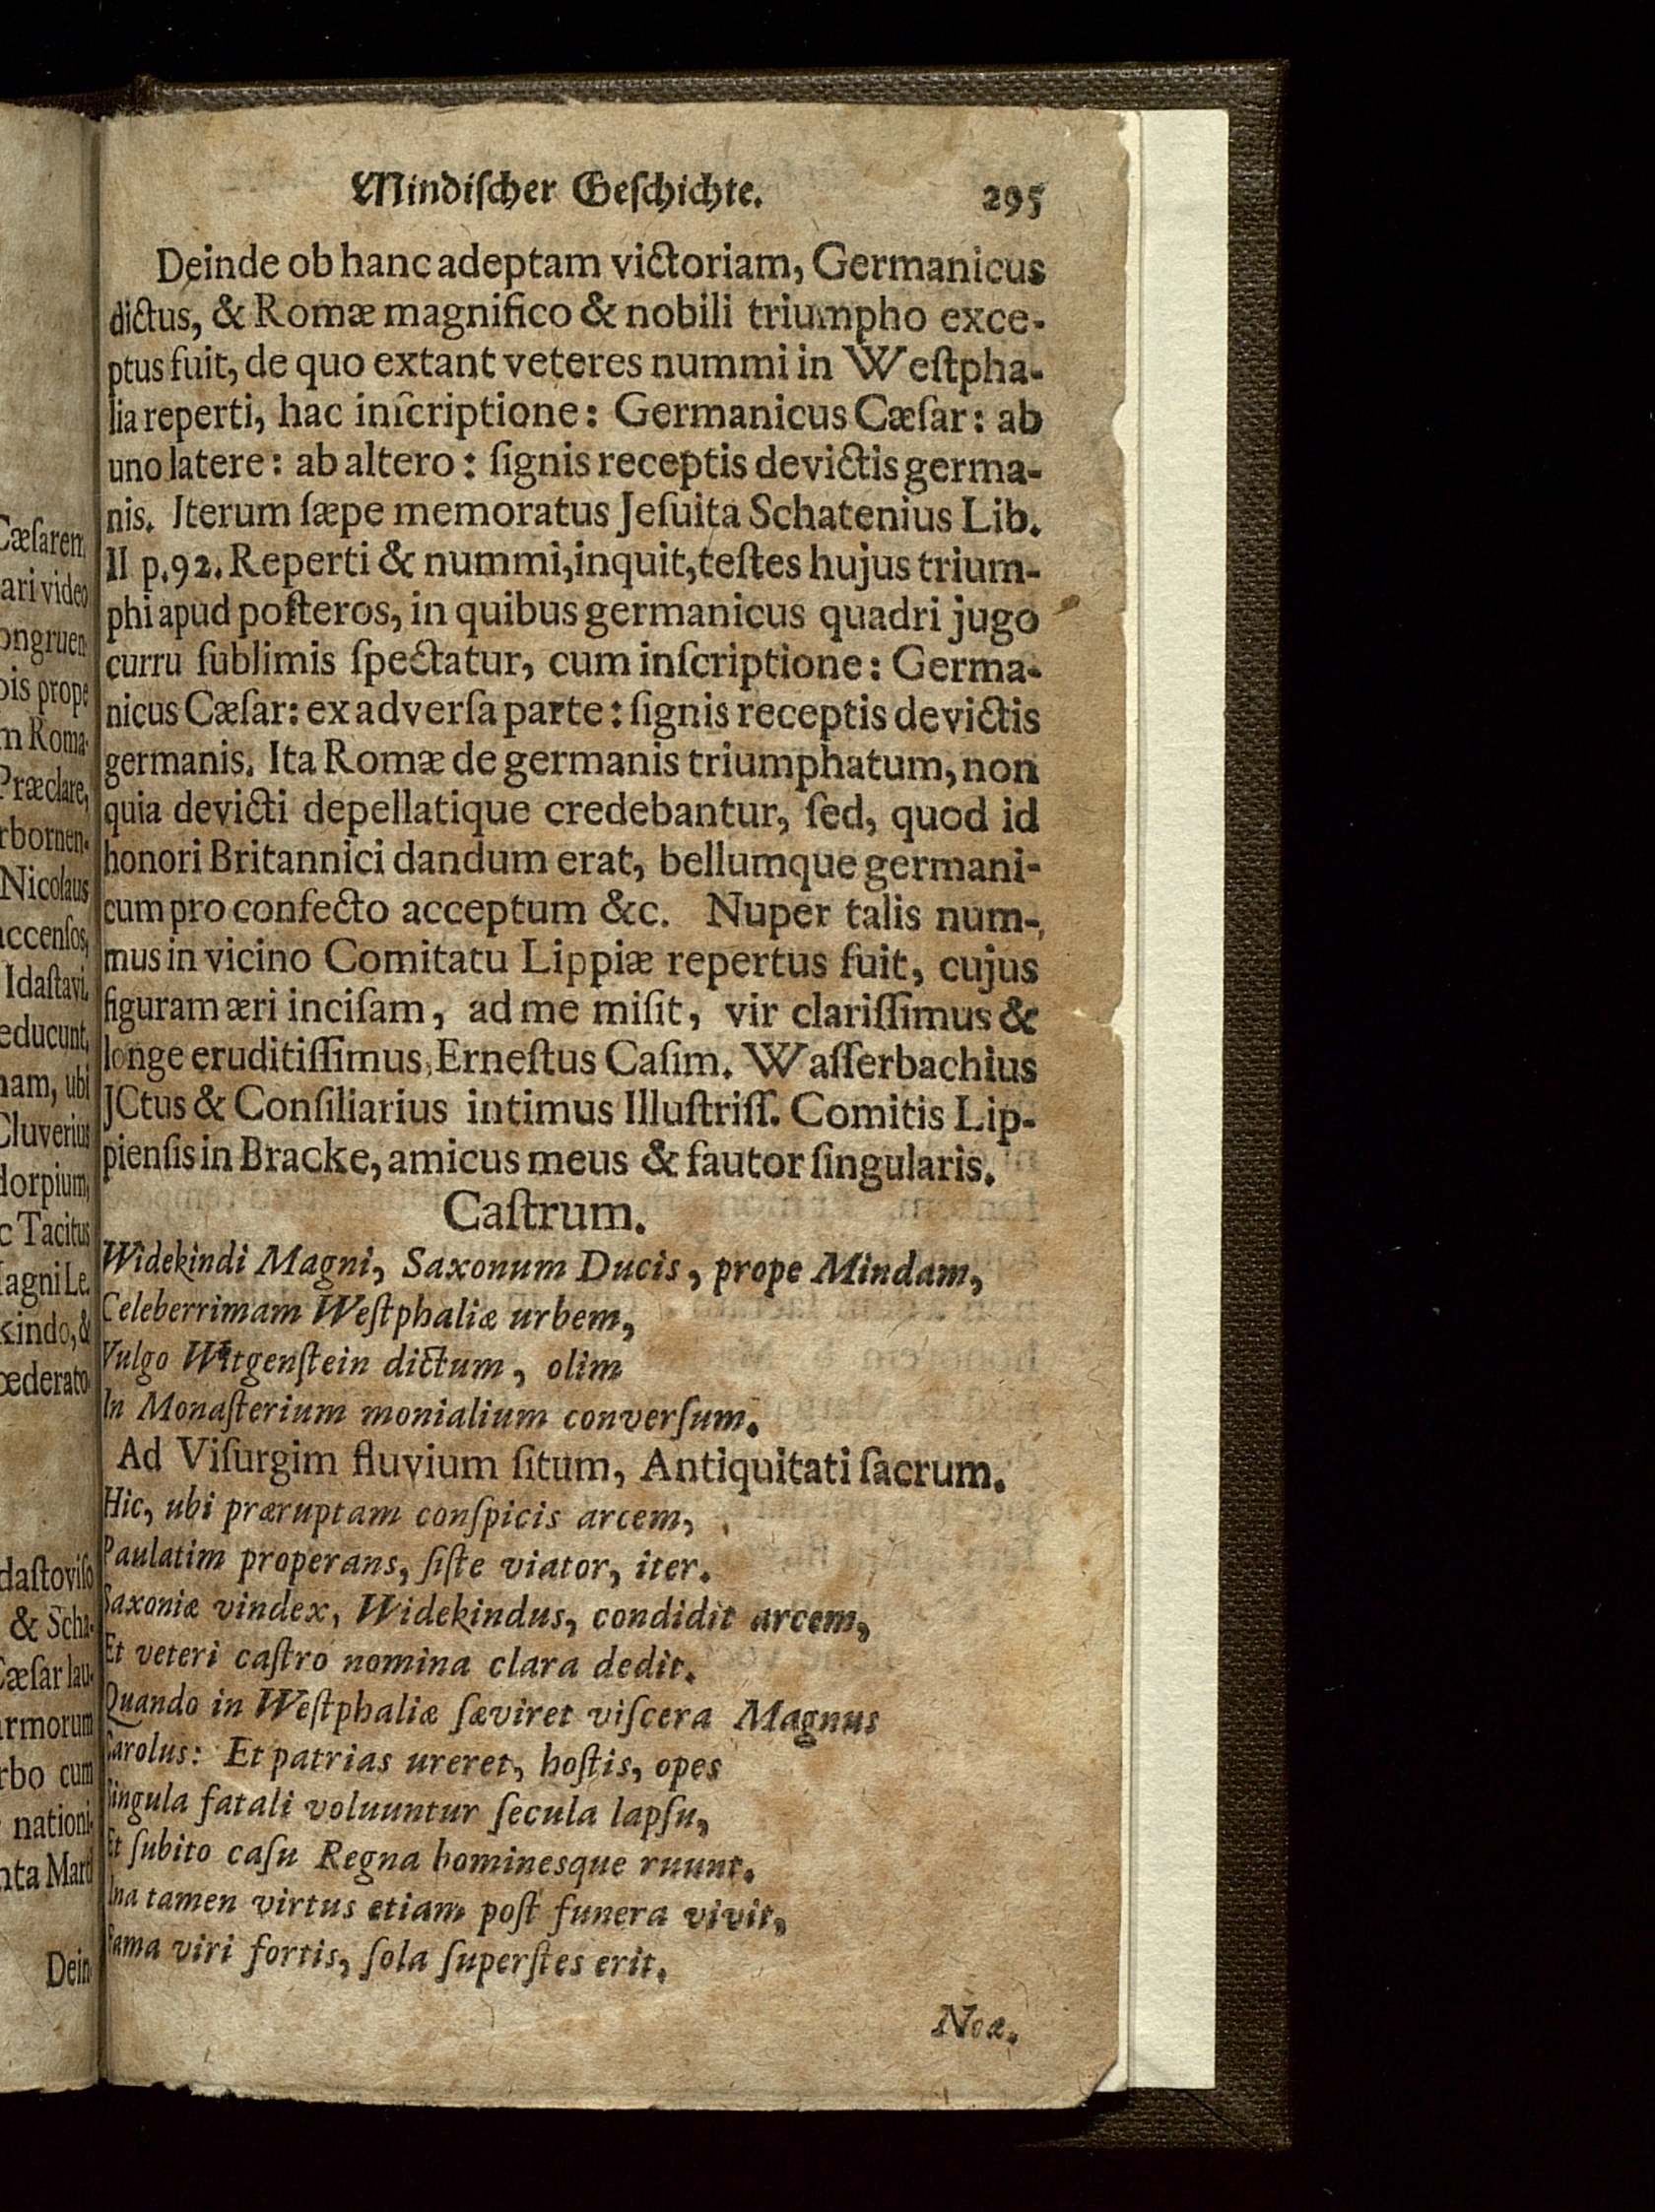 Mindiſcher Geſchichte. 295
Deinde ob hanc adeptam victoriam, Germanicus
dictus, & Romæ magnifico & nobili triumpho exce-
ptus fuit, de quo extant veteres nummi in Weſtpha-
lia reperti, hac inſcriptione: Germanicus Cæſar: ab
uno latere: ab altero: ſignis receptis devictis germa-
nis. Iterum ſæpe memoratus Jeſuita Schatenius Lib.
II p. 92. Reperti & nummi, inquit, teſtes hujus trium-
phi apud poſteros, in quibus germanicus quadri jugo
curru ſublimis ſpectatur, cum inſcriptione: Germa-
nicus Cæſar: ex adverſa parte: ſignis receptis devictis
germanis. Ita Romæ de germanis triumphatum, non
quia devicti depellatique credebantur, ſed, quod id
honori Britannici dandum erat, bellumque germani-
cum pro confecto acceptum &c. Nuper talis num-
mus in vicino Comitatu Lippiæ repertus fuit, cujus
figuram æri inciſam, ad me miſit, vir clariſſimus &
longe eruditiſſimus, Erneſtus Caſim. Waſſerbachius
JCtus & Conſiliarius intimus Illuſtriſſ. Comitis Lip-
pienſis in Bracke, amicus meus & fautor ſingularis.
Caſtrum.
Widekindi Magni, Saxonum Ducis, prope Mindam,
Celeberrimam Weſtphaliæ urbem,
Vulgo Witgenſtein dictum, olim
In Monaſterium monialium converſum.
Ad Viſurgim fluvium ſitum, Antiquitati ſacrum.
Hic, ubi præruptam conſpicis arcem,
Paulatim properans, ſiſte viator, iter.
Saxoniæ vindex, Widekindus, condidit arcem,
Et veteri caſtro nomina clara dedit.
Quando in Weſtphaliæ ſæviret viſcera Magnus
Carolus: Et patrias ureret, hoſtis, opes
Singula fatali voluuntur ſecula lapſu,
Et ſubito caſu Regna hominesque ruunt.
Una tamen virtus etiam poſt funera vivit,
Fama viri fortis, ſola ſuperſtes erit.
Noæ.